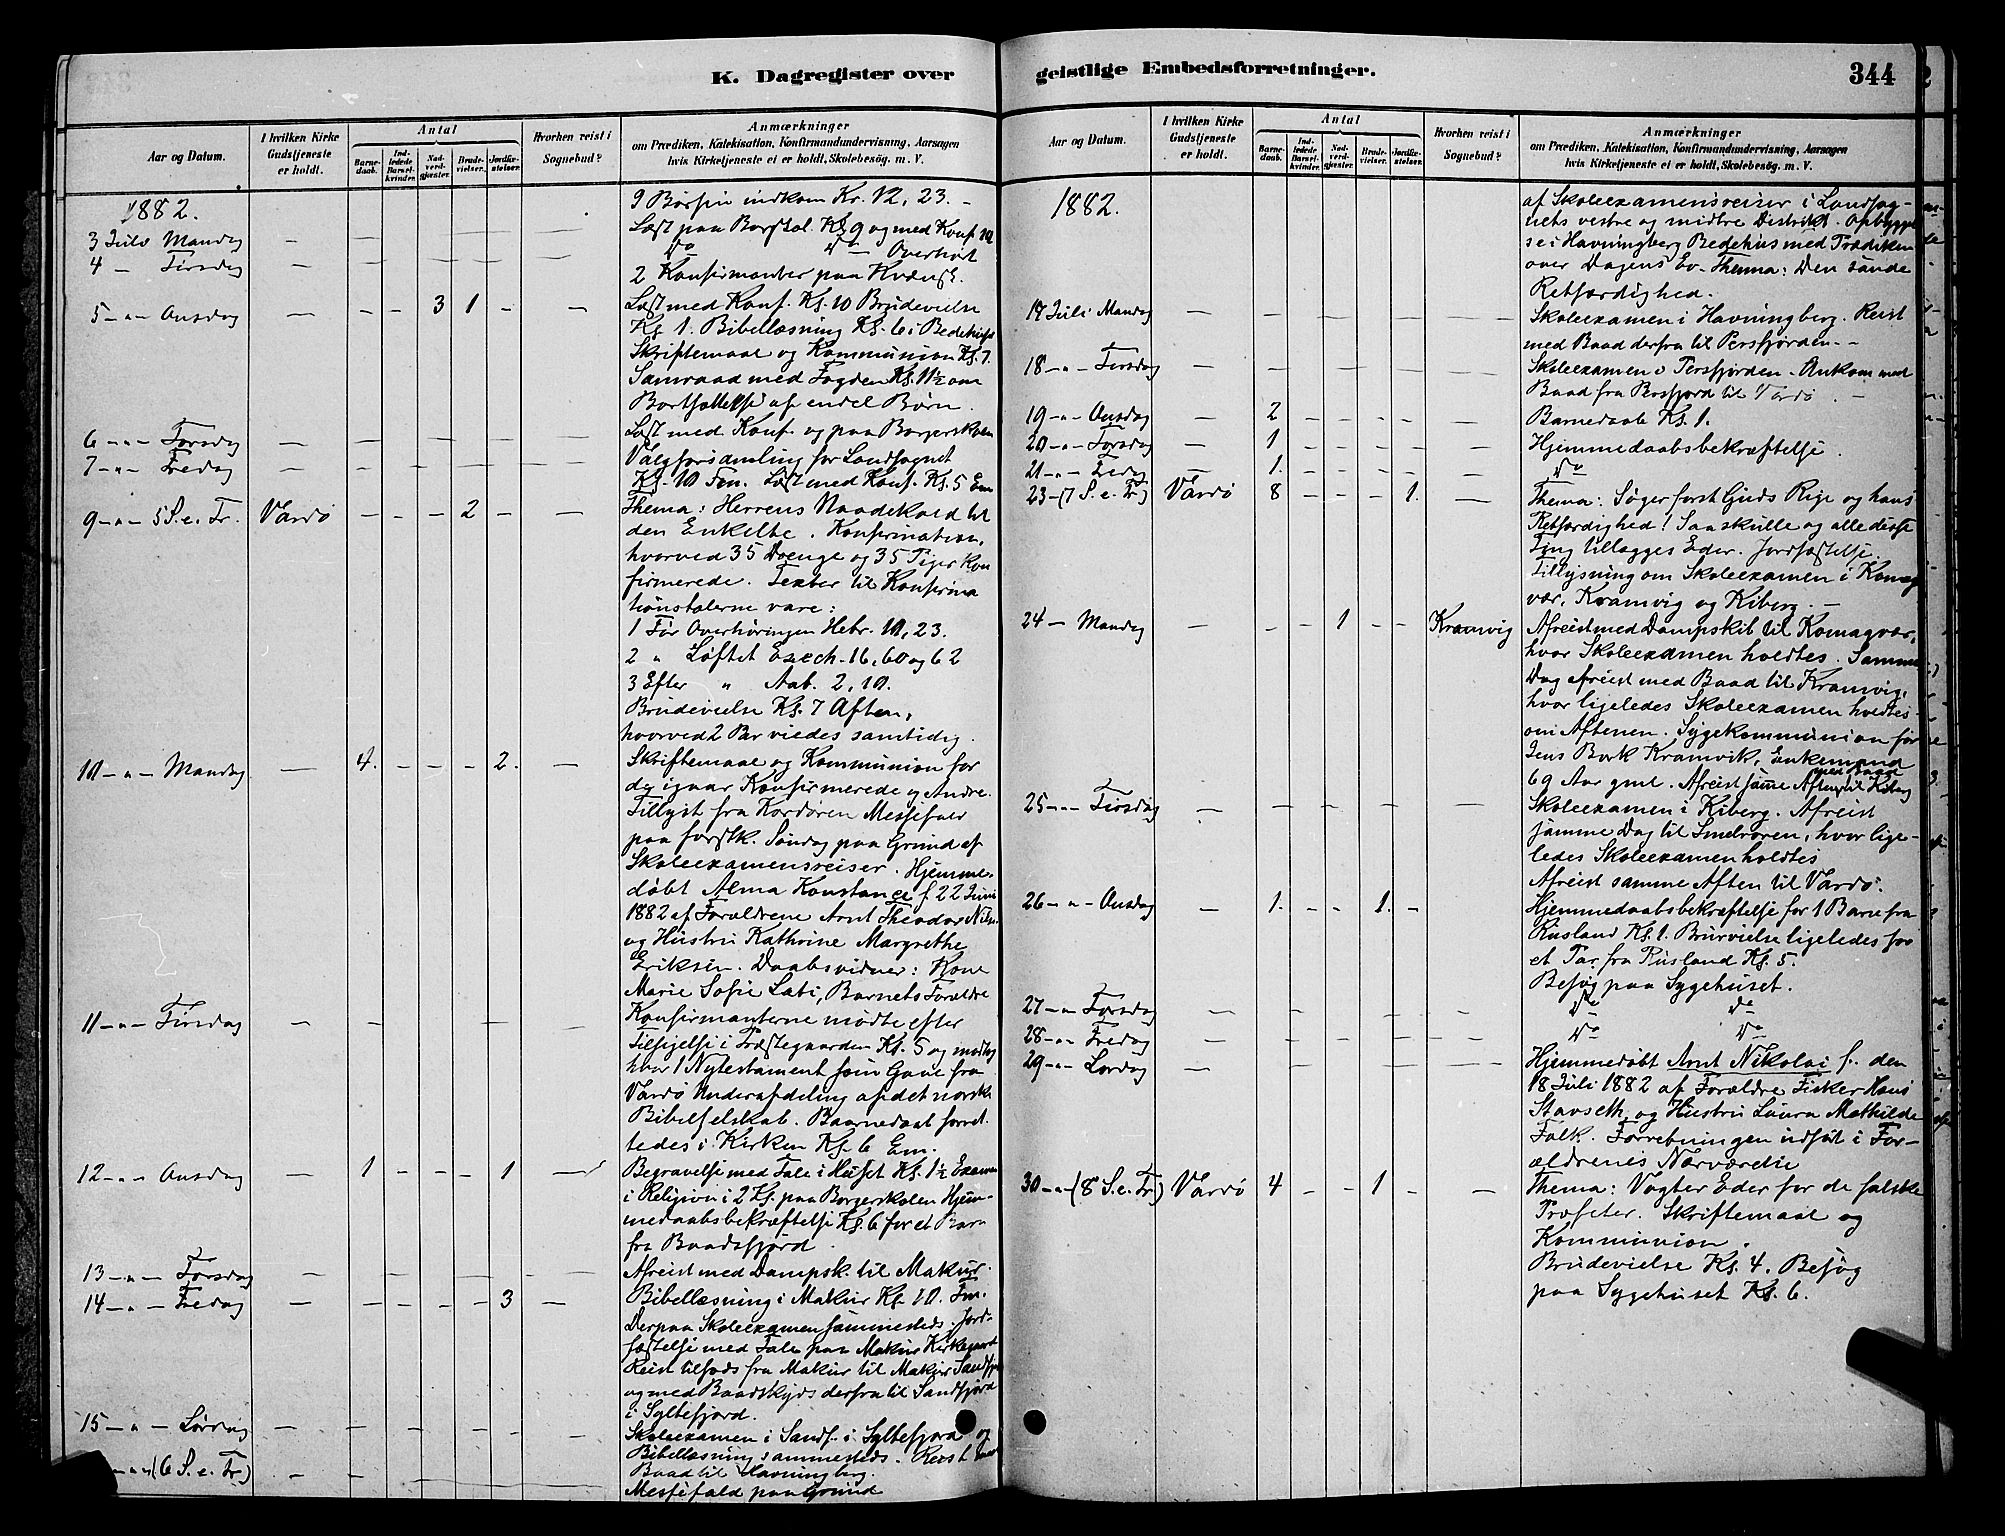 K. Dagregister over
Aar og Datum.
I hvilken Kirke Gudstjeneste er holdt.
Antal
Barnedaab.
Indledede Barselkvinder.
Nadverdgjester.
Brudevielser.
Jordfæstelser.
Hvorhen reist i Sognebud?
Anmærkninger
om Prædiken, Katekisation, Konfirmandundervisning, Aarsagen
hvis Kirketjeneste ei er holdt, Skolebesøg. m. V.
1882.
9 Bøssen indkom Kr. 12, 23. -
3 Juli Mandag - Læst paa Borgsk. Kl. 9 og med Konf.
4 - Tirsdag - Do Do Overhørt
2 Konfirmanter paa Kvænsk.
5 - " - Onsdag - - - 3 1 - - Læst med Konf. Kl. 10 Brudevielse
Kl. 1. Bibellæsning Kl. 6 i Bedehuset
Skriftemaal og Kommunion Kl. 7.
Samraad med Fogden Kl. 11½ om
Bortsættelse af endel Børn.
6 - " - Torsdag - Læst med Konf. og paa Borgerskolen
7 - " - Fredag - Valgforsamling for Landsognet
Kl. 10 Fm. Læst med Konf. Kl. 5 Em
9 - " - 5 S. e. Tr. Vardø - - - 2 - - Thema: Herrens Naadekald til
den Enkelte. Konfirmation,
hvorved 35 Drenge og 35 Piger kon
firmerede. Texter til Konfirma
tionstalerne vare:
1 Før Overhøringen Hebr. 10, 23.
2 " Løftet Ezech. 16, 60 og 62
3 Efter " Aab. 2, 10.
Brudevielse Kl. 7 Aften,
hvorved 2 Par viedes samtidig.
10 - " - Mandag - 4. - - - 2. - Skriftemaal og Kommunion for
de igaar Konfirmerede og Andre.
Tillyst fra Kordøren Messefald
paa førstk. Søndag paa Grund af
Skoleexamensreiser. Hjemme-
døbt Alma Konstance f. 22 Juni
1882 af Forældrene Arnt Theodor Nils.
og Hustru Kathrine Margrethe
Eriksen. Daabsvidner: Kone
Marie Sofie Lati, Barnets Forældre
11 - " - Tirsdag - Konfirmanterne mødte efter
Tilsigelse i Præstegaarden Kl. 5 og modtog
hver 1 Nytestament som Gave fra
Vardø Underafdeling af det norske
Bibelselskab. Baarnedaab forret
tedes i Kirken Kl. 6 Em.
12 - " - Onsdag 1 - - - 1 - Begravelse med Tale i Huset Kl. 1½ Examen
i Religion i 2 Kl. paa Borgerskolen Hjem-
medaabsbekræftelse Kl. 6 for et Barn
fra Baadsfjord.
13 - " - Torsdag - Afreist med Dampsk. til Makur.
14 - " - Fredag - - - - - 3 - Bibellæsning i Makur Kl. 10. Fm.
Derpaa Skoleexamen sammesteds. Jord-
fæstelse med Tale paa Makur Kirkegaard
Reist tilfods fra Makur til Makur Sandfj
og med Baadskyds derfra til Sandfjord
i Syltefjord.
15 - " - Lørdag - Skoleexamen i Sandf. i Syltefjord og
Bibellæsning sammesteds. Reist med
Baad til Havningberg.
(6 S. e. Tr.) - - Messefald paa Grund
geistlige Embedsforretninger.
344
Aar og Datum.
I hvilken Kirke Gudstjeneste er holdt.
Antal
Barnedaab.
Indledede Barselkvinder.
Nadverdgjester.
Brudevielser.
Jordfæstelser.
Hvorhen reist i Sognebud?
Anmærkninger
om Prædiken, Katekisation, Konfirmandundervisning, Aarsagen
hvis Kirketjeneste ei er holdt, Skolebesøg, m. V.
1882.
af Skoleexamensreiser i Landsog-
nets vestre og midtre Distrikt. Opbyggel
se i Havningberg Bedehus med Prædiken
over Dagens Ev. Thema: Den sande
Retfærdighed.
17 Juli Mandag - Skoleexamen i Havningberg. Reist
med Baad derfra til Persfjorden. -
18 - " - Tirsdag - Skoleexamen i Persfjorden. Ankom med
Baad fra Persfjord til Vardø. -
19 - " - Onsdag - 2 - - - - - Barnedaab Kl. 1.
20 - " - Torsdag - 1 - - - - - Hjemmedaabsbekræftelse.
21 - " - Fredag - 1. - - - - - Do
23 - (7 S. e. Tr) Vardø 8 - - - 1. - Thema: Søger først Guds Rige og hans
Retfærdighed! Saa skulle og alle disse
Ting tillægges Eder. Jordfæstelse.
Tillysning om Skoleexamen i Komag
vær, Kramvig og Kiberg. -
24 - Mandag - - - 1 - - Kramvig Afreist med Dampskib til Komagvær,
hvor Skoleexamen holdtes. Samme
Dag afreist med Baad til Kramvig,
hvor ligeledes Skoleexamen holdtes
om Aftenen. Sygekommunion for
Jens Bork Kramvik, Enkemand
69 Aar gml. Afreist samme Aften med Baad til Kiberg
25 - " - Tirsdag - Skoleexamen i Kiberg. Afreist
samme Dag til Smelroren, hvor lige-
ledes Skoleexamen holdtes
Afreist samme Aften til Vardø.
26 - " - Onsdag - 1. - - 1. - Hjemmedaabsbekræftelse for 1 Barn fra
Rusland Kl. 1. Brurvielse ligeledes for
et Par fra Rusland Kl. 5.
Besøg paa Sygehuset.
27 - " - Torsdag - Do Do
28 - " - Fredag - Do Do
29 - " - Lørdag - Hjemmedøbt Arnt Nikolai f. den
18 Juli 1882 af Forældre Fisker Hans
Stavseth og Hustru Laura Mathilde
Falk. Forretningen udført i For-
ældrenes Nærværelse
30 - " - (8 S. e. Tr) Vardø 4 - - 1 - - Thema: Vogter Eder for de falske
Profeter. Skriftemaal og
Kommunion.
Brudevielse Kl. 4. Besøg
paa Sygehuset Kl. 6.